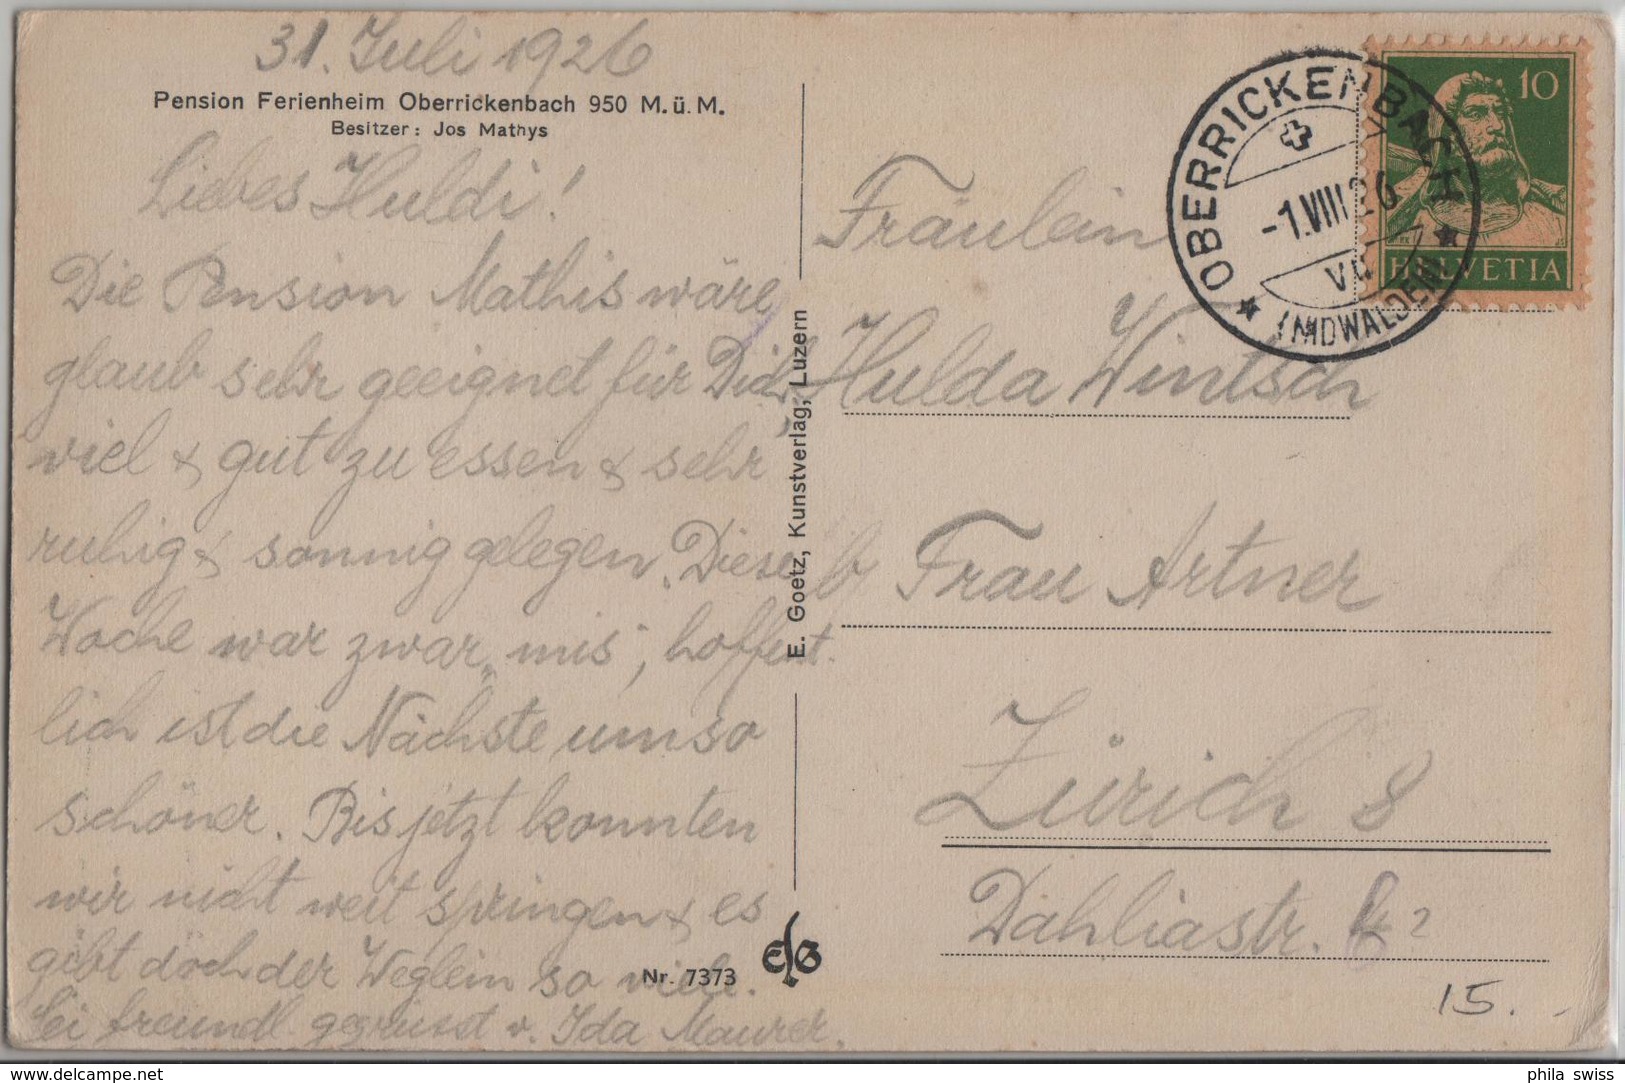 31. Juli 1926
Pension Ferienheim Oberrickenbach 950 M.ü.M.
Besitzer: Jos Mathys
Liebes Huldi!
Die Pension Mathis wäre
glaub sehr geeignet für Dich,
viel & gut zu essen & sehr
ruhig & sonnig gelegen. Diese
Woche war zwar „mis“, hoffent-
lich ist die Nächste umso
schöner. Bis jetzt konnten
wir nicht weit springen & es
gibt doch der Weglein so viele.
Sei freundl. gegrüsst v. Ida Maurer.
Nr. 7373
E. Goetz, Kunstverlag, Luzern
EG
OBERRICKENBACH
-1.VIII.26
(NIDWALDEN)
10
HELVETIA
Fräulein
Hulda Wintsch
b/ Frau Artner
Zürich 8
Dahliastr.
15.
phila swiss
www.delcampe.net